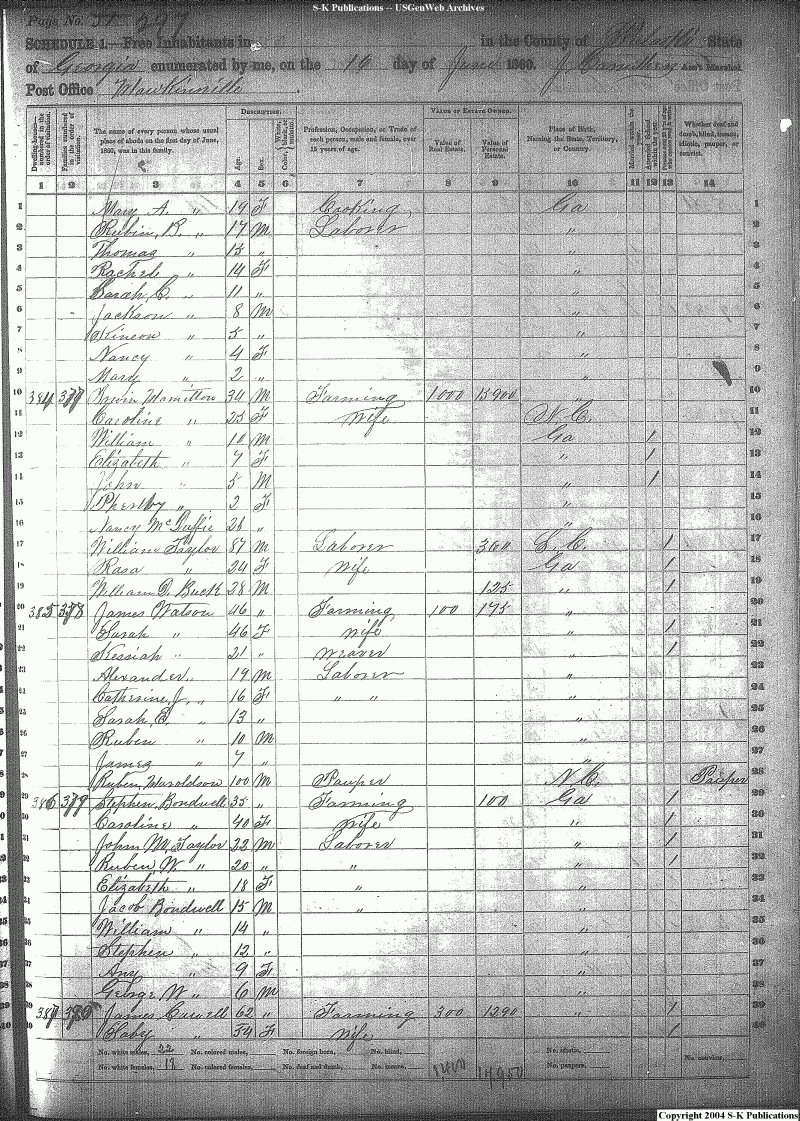 S-K Publications -- USGenWeb Archives
Page No. 51 297
SCHEDULE 1.—Free Inhabitants in in the County of Pulaski State
of Georgia enumerated by me, on the 16 day of June 1860. Ass't Marshal.
Post Office Hawkinsville
DESCRIPTION. VALUE OF ESTATE OWNED.
Dwelling-houses numbered in the order of visitation. Families numbered in the order of visitation. The name of every person whose usual place of abode on the first day of June, 1860, was in this family. Age. Sex. Color, White, black, or mulatto. Profession, Occupation, or Trade of each person, male and female, over 15 years of age. Value of Real Estate. Value of Personal Estate. Place of Birth, Naming the State, Territory, or Country. Married within the year. Attended School within the year. Whether deaf and dumb, blind, insane, idiotic, pauper, or convict.
1 2 3 4 5 6 7 8 9 10 11 12 13 14
1 Mary A. " 19 F Cooking Ga 1
2 Rubin, R. " 17 M Laborer " 2
3 Thomas " 15 " " 3
4 Rachel " 14 F " 4
5 Sarah, C. " 11 " " 5
6 Jackson " 8 M " 6
7 " 5 " " 7
8 Nancy " 4 F " 8
9 Mary " 2 " " 9
10 384 377 Irwin Hamilton 34 M Farming 1000 13900 " 10
11 Caroline " 25 F Wife N.C. 11
12 William " 10 M Ga 1 12
13 Elizabeth " 7 F " 1 13
14 John " 5 M " 1 14
15 Pherby " 2 F " 15
16 Nancy McDuffie 28 " " 16
17 William Taylor 87 M Laborer 360 S.C. 1 17
18 Rasa " 24 F Wife Ga 1 18
19 William D. Buck 28 M 125 " 1 19
20 385 378 James Watson 46 " Farming 100 175 " 20
21 Sarah " 46 F Wife " 1 21
22 Kessiah " 21 " Weaver " 1 22
23 Alexander " 19 M Laborer " 23
24 Catherine, J. " 16 F " " " 24
25 Sarah, E. " 13 " " 25
26 Ruben " 10 M " 26
27 James " 7 " " 27
28 Ruben Haroldson 100 M Pauper N.C. Pauper 28
29 386 379 Stephen, Bondwell 35 " Farming 100 Ga 1 29
30 Caroline " 40 F Wife " 1 30
31 John M. Taylor 22 M Laborer " 1 31
32 Ruben W. " 20 " " " 1 32
33 Elizabeth " 18 F " " 33
34 Jacob Bondwell 15 M " " 34
35 William " 14 " " 35
36 Stephen " 12 " " 36
37 Any " 9 F " 37
38 George W " 6 M " 38
39 387 380 James 62 " Farming 300 1290 " 1 39
40 " 54 F Wife 1 40
No. white males, 22 No. colored males, No. foreign born, No. blind, No. idiotic, No. convicts,
No. white females, 18 No. colored females, No. deaf and dumb, No. insane, 1400 No. paupers,
Copyright 2004 S-K Publications